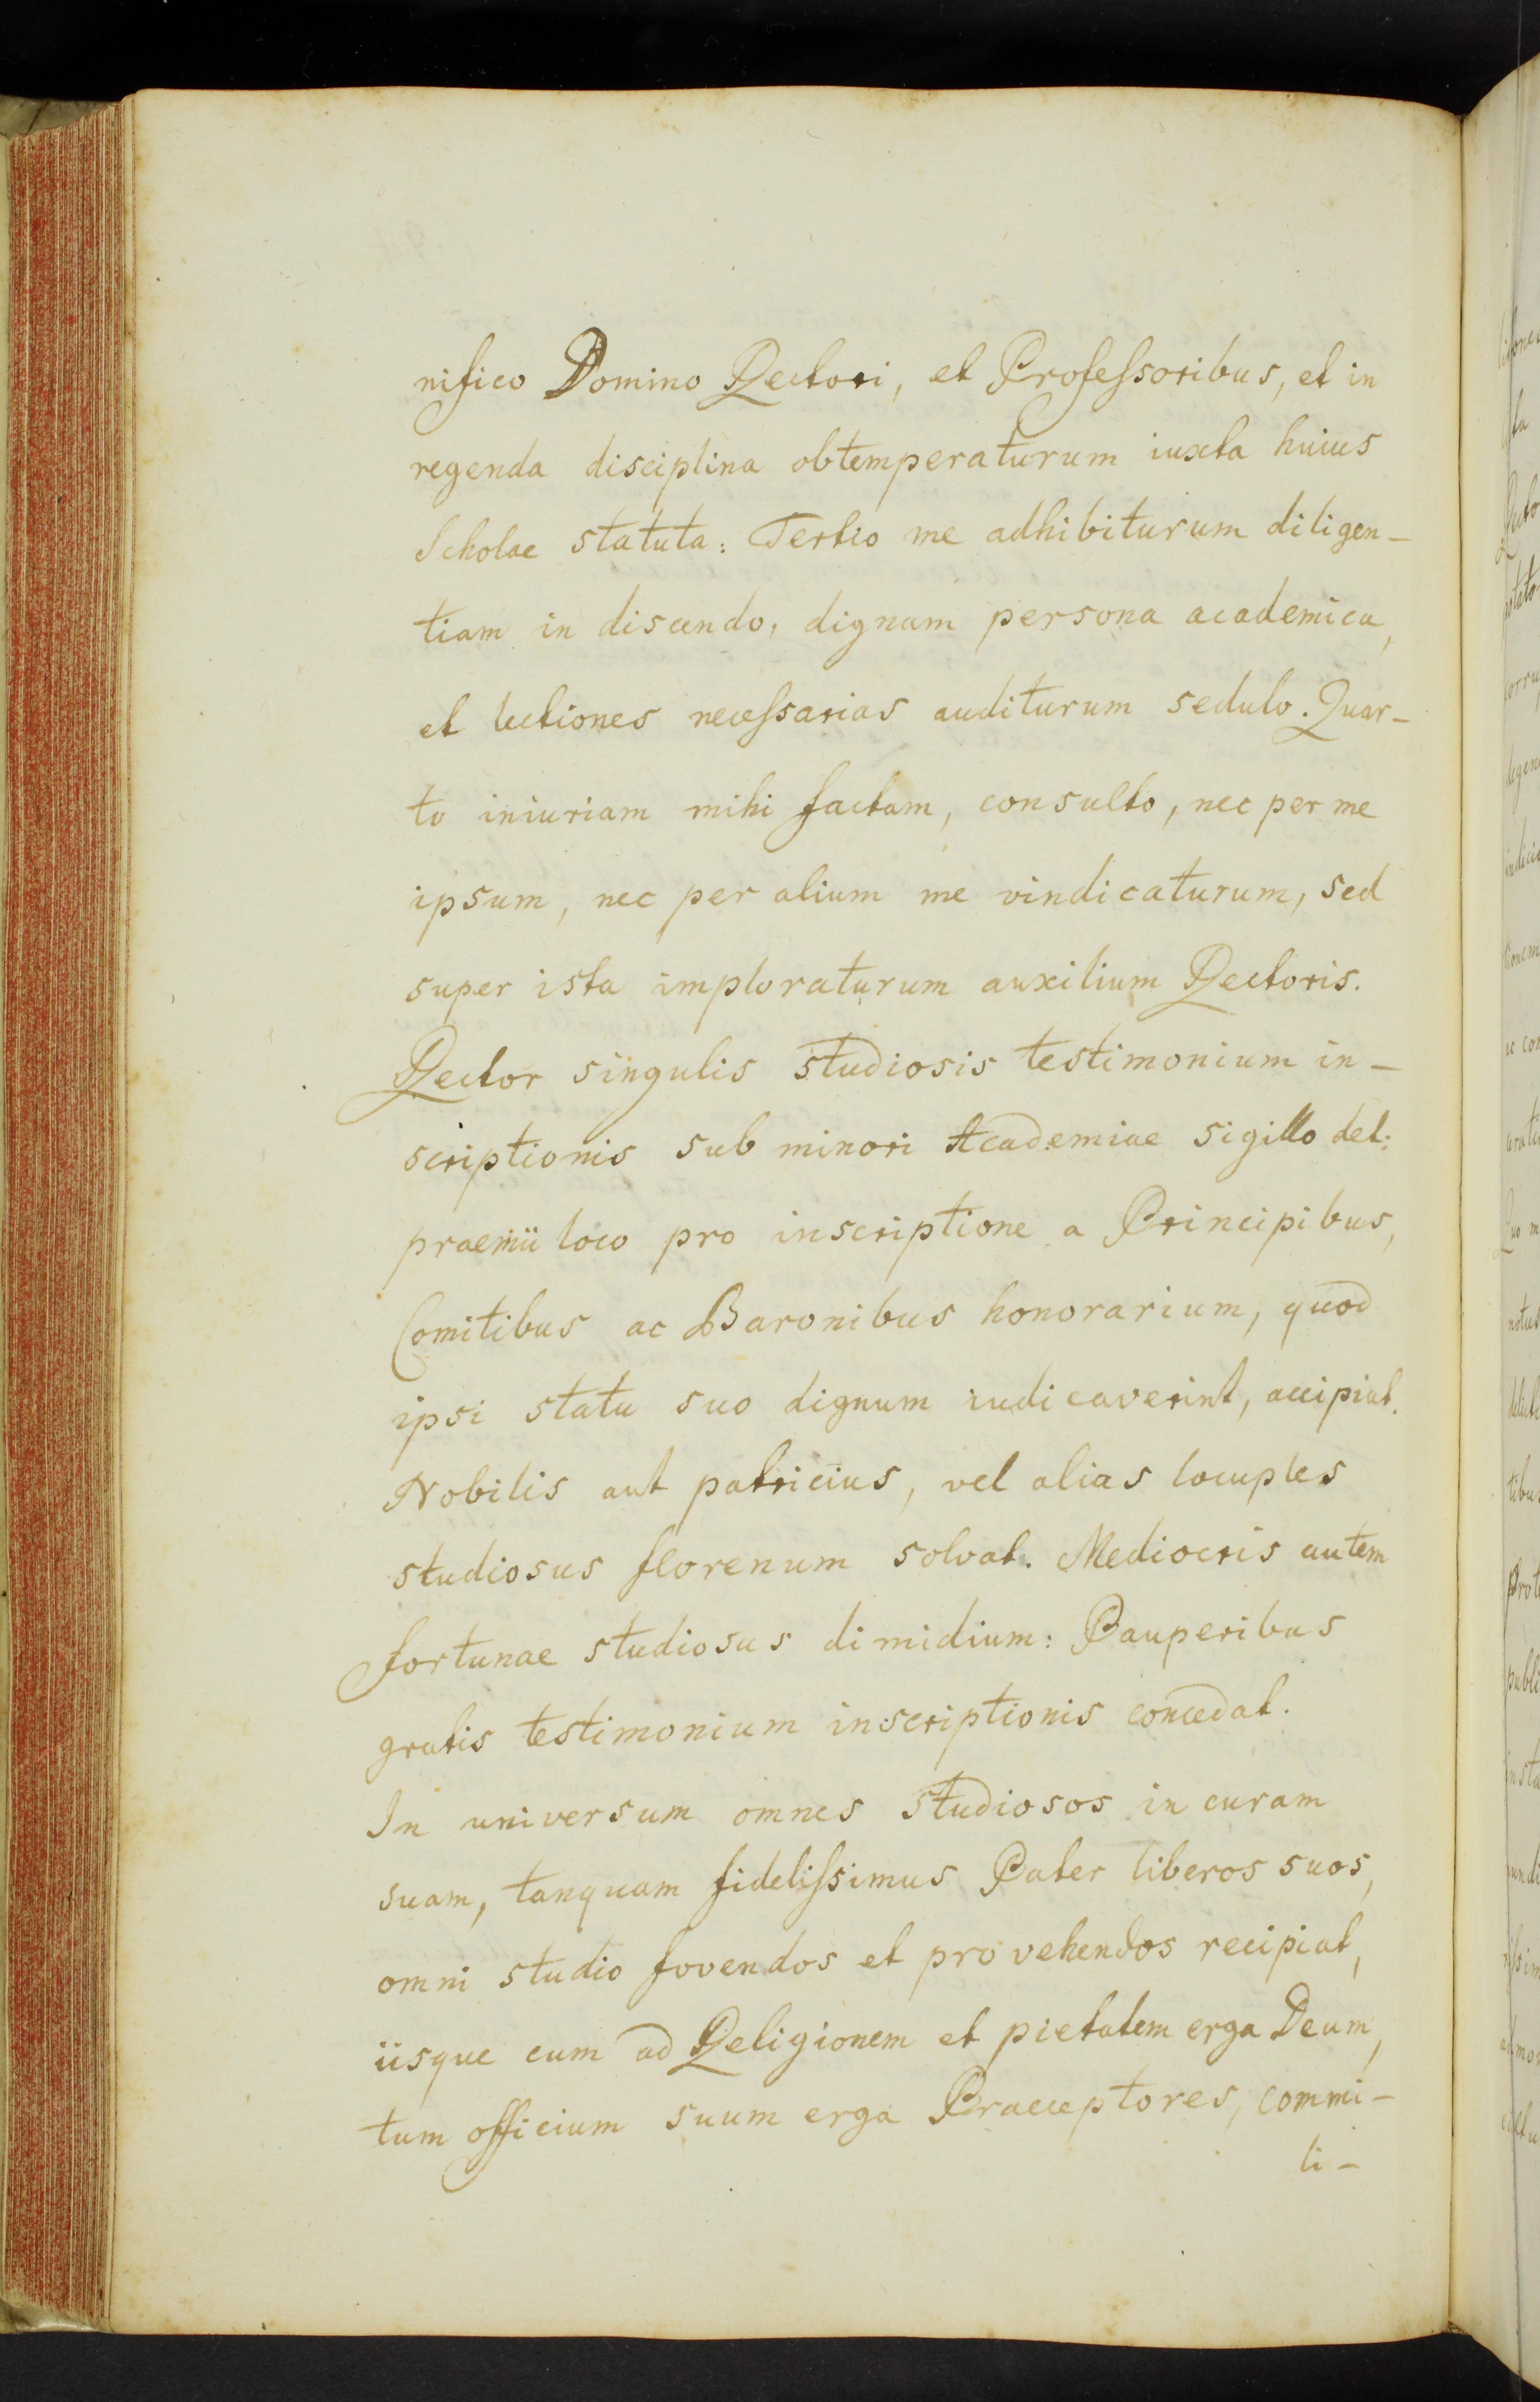 nifico Domino Rectori, et Profeſsoribus, et in
regenda disciplina obtemperaturum iuxta huius
Scholae statuta: Tertio me adhibiturum diligen-
tiam in discendo, dignam persona academica,
et lectiones neceſsarias auditurum sedulo. Quar-
to iniuriam mihi factam, consulto, nec per me
ipsum, nec per alium me vindicaturum, sed
super ista imploraturum auxilium Rectoris.
Rector singulis studiosis testimonium in-
scriptionis sub minori Academiae sigillo det:
praemii loco pro inscriptione a Principibus,
Comitibus ac Baronibus honorarium, quod
ipsi statu suo dignum iudicaverint, accipiat.
Nobilis aut patricius, vel alias locuples
studiosus florenum solvat. Mediocris autem
fortunae studiosus dimidium: Pauperibus
gratis testimonium inscriptionis concedat.
In universum omnes studiosos in curam
suam, tanquam fideliſsimus Pater liberos suos,
omni studio fovendos et provehendos recipiat,
iisque cum ad Religionem et pietatem erga Deum,
tum officium suum erga Praeceptores, commi-
li-